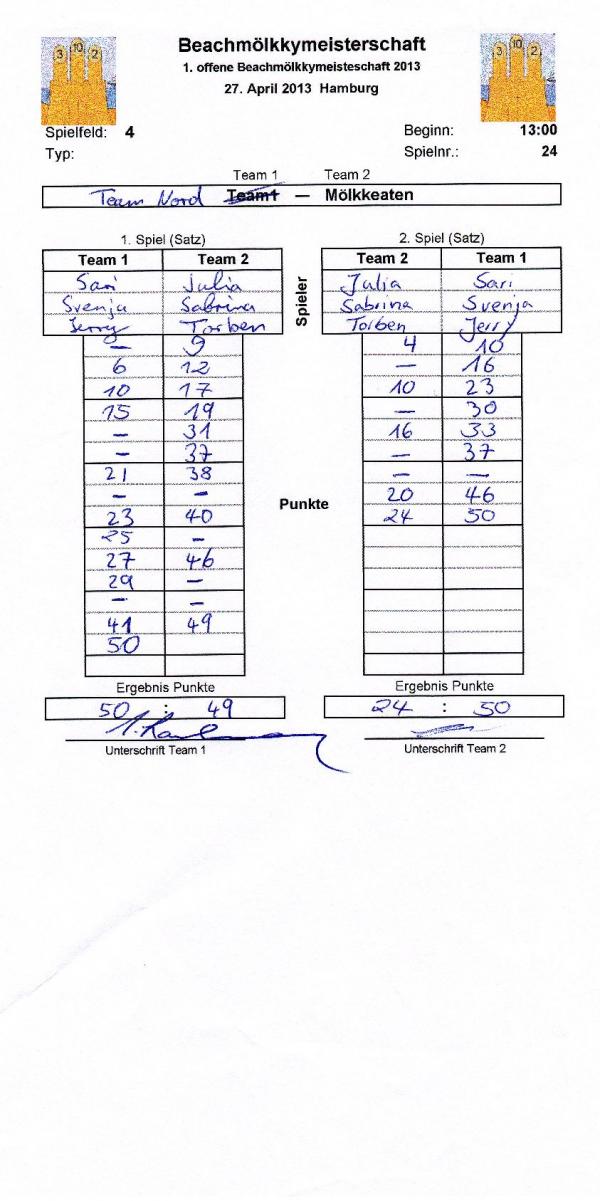 Beachmölkkymeisterschaft
1. offene Beachmölkkymeisteschaft 2013
27. April 2013 Hamburg
3 10 2
3 10 2
Spielfeld: 4 Beginn: 13:00
Typ: Spielnr.: 24
Team 1 Team 2
Team Nord Team1 — Mölkkeaten
1. Spiel (Satz) 2. Spiel (Satz)
Team 1 Team 2 Team 2 Team 1
Sari Julia Julia Sari
Svenja Sabrina Sabrina Svenja
Jerry Torben Torben Jerry
Spieler
– 9 4 10
6 12 – 16
10 17 10 23
15 19 – 30
– 31 16 33
– 37 – 37
21 38 – –
– – 20 46
Punkte
23 40 24 50
25 –
27 46
29 –
– –
41 49
50
Ergebnis Punkte Ergebnis Punkte
50 : 49 24 : 50
Unterschrift Team 1 Unterschrift Team 2